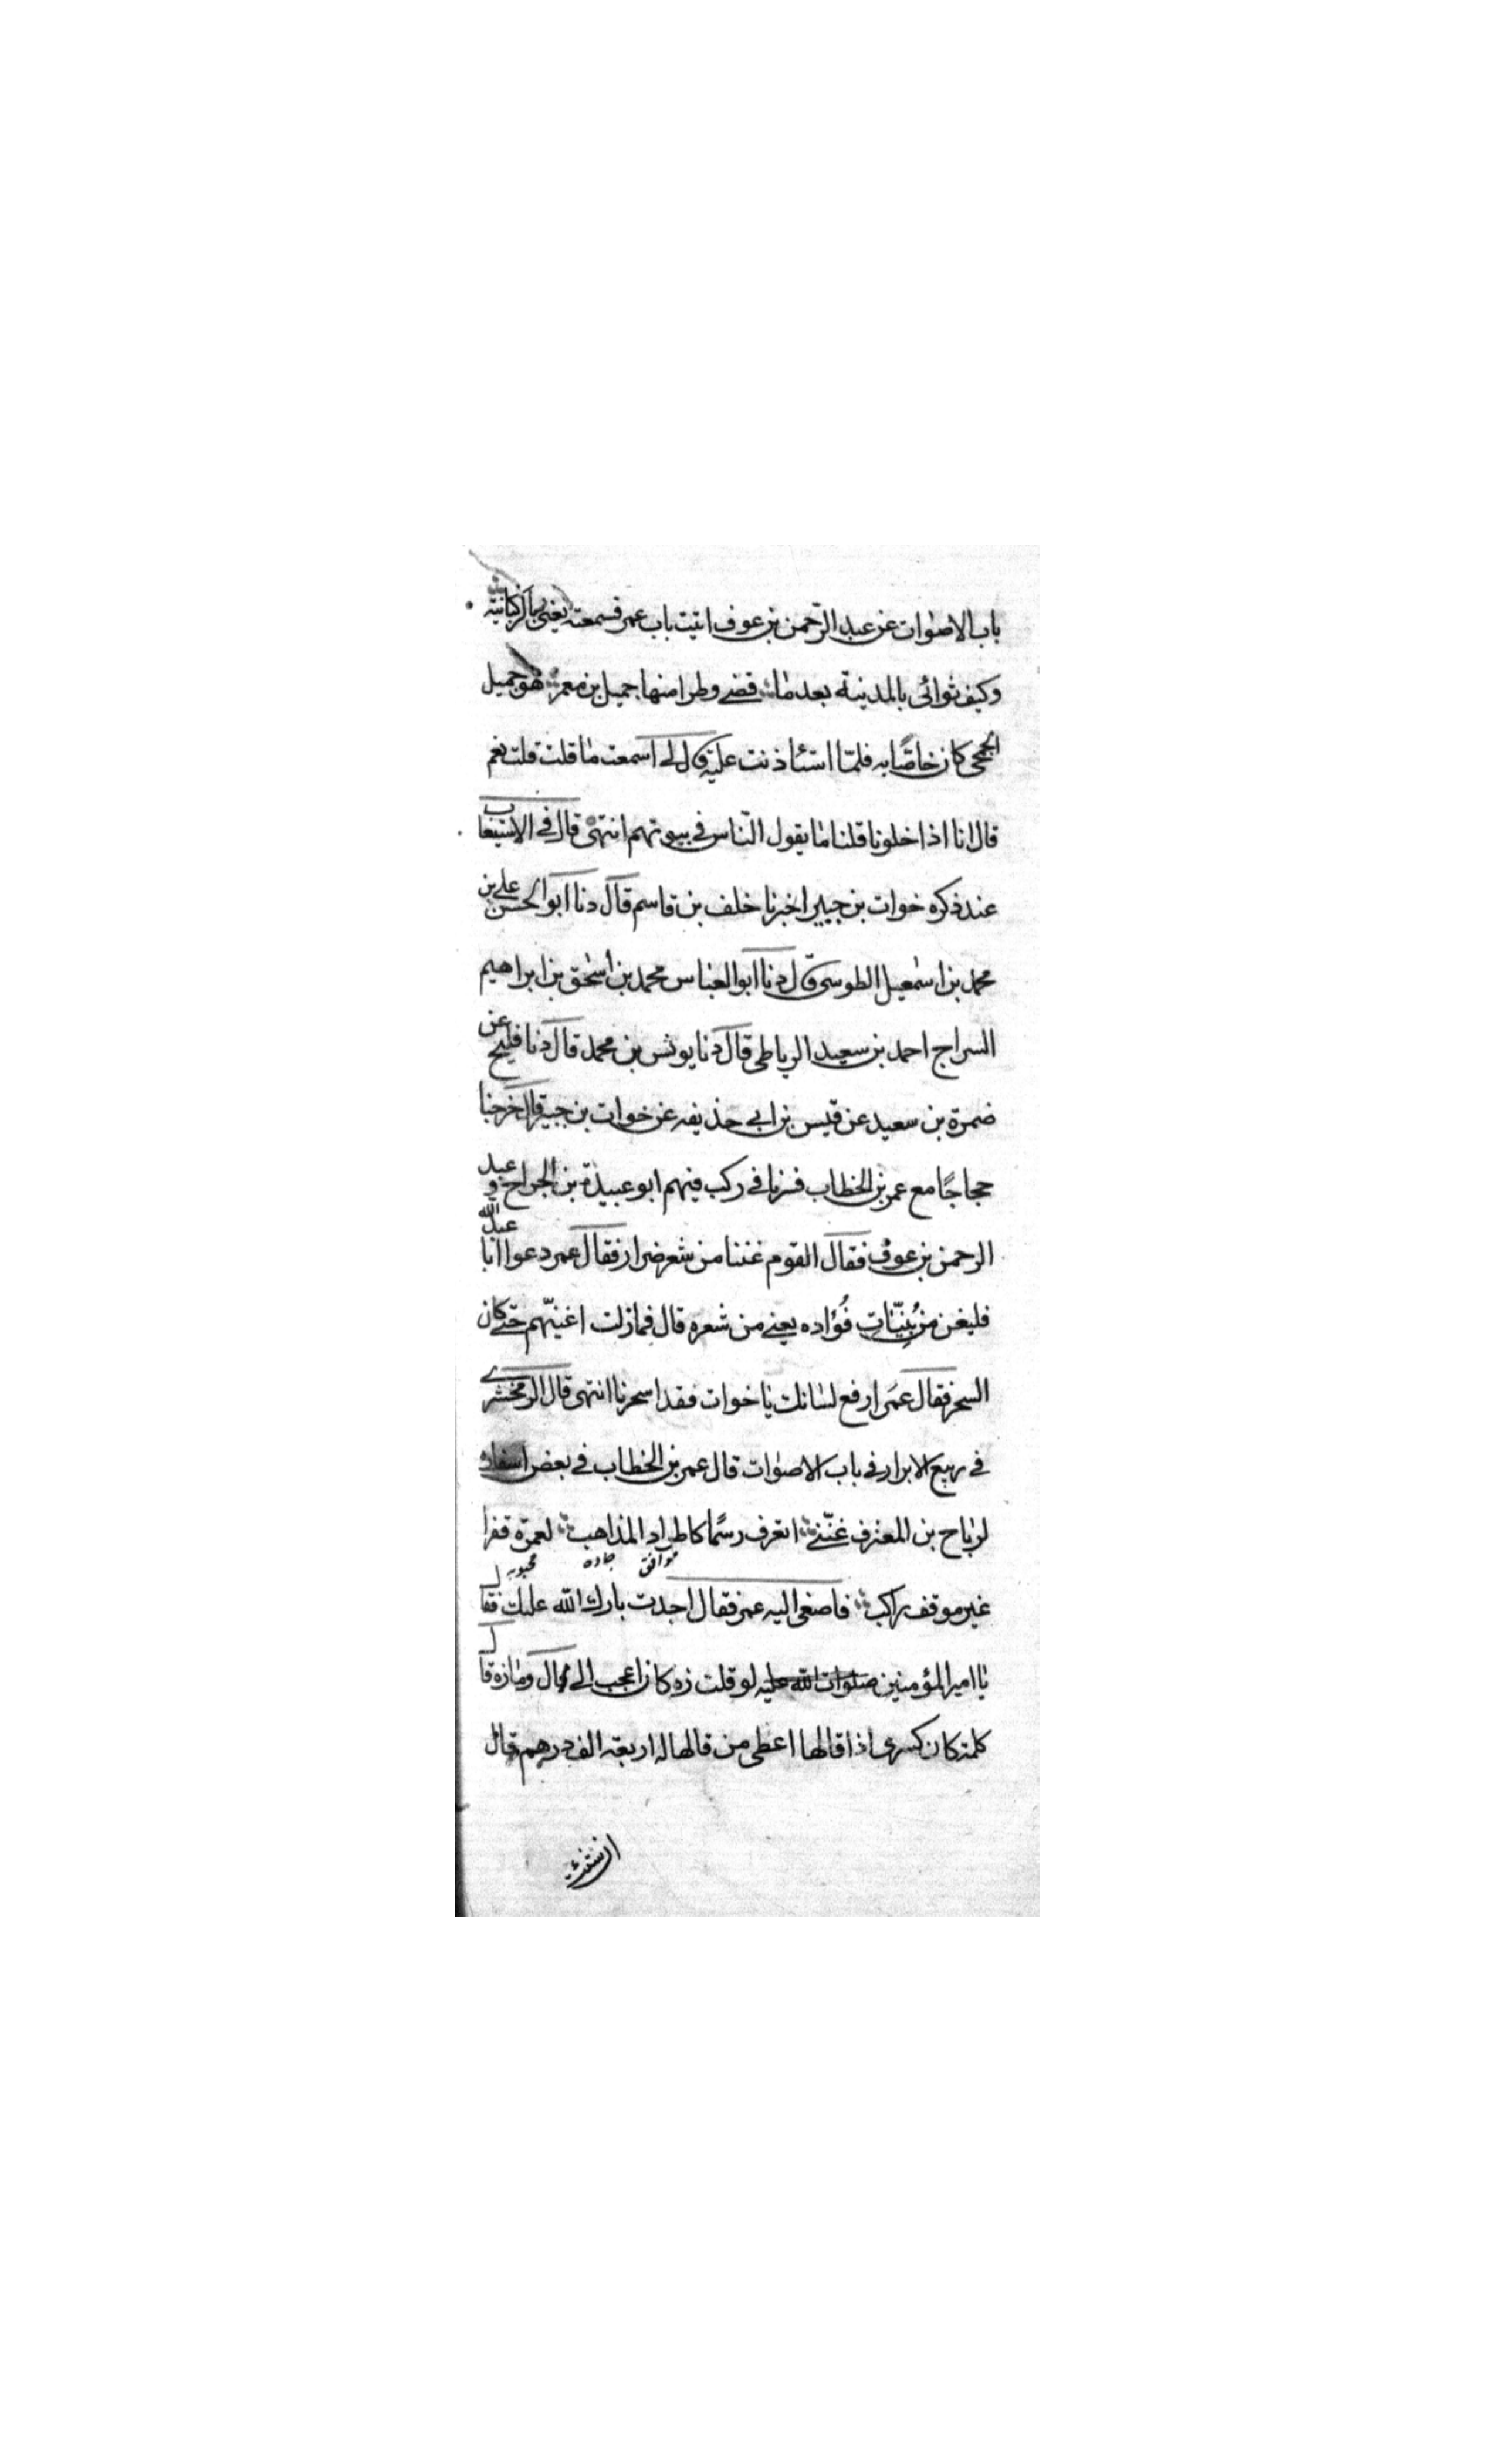 باب الاصوات عن عبد الرّحمن بن عوف اتيت باب عمر فسمعته يغنى بالركبانية
وكيف ثوائى بالمدينة بعد ما قضے وطرا منها جميل بن معمر هو جميل
الجمحى كان خاصًّا به فلمّا استئاذنت عليه قال لے اسمعت ما قلت قلت نعم
قال انا اذا خلونا قلنا ما يقول النّاس فے بيوتهم انتهى قال فے الاستيعاب
عند ذكره خوات بن جبير اخبرنا خلف بن قاسم قال دنا ابو الحسن علے بن
محمد بن اسمعيل الطوسى قال دنا ابو العباس محمد بن اسحق بن ابراهيم
السراج احمد بن سعيد الرباطى قال دنا يونس بن محمد قال دنا فليح عن
ضمرة بن سعيد عن قيس بن ابے حذيفه عن خوات بن جبير قال خرجنا
حجاجًا مع عمر بن الخطاب فسرنا فے ركب فيهم ابو عبيدة بن الجراح و عبد
الرحمن بن عوف فقال القوم غننا من شعر ضرار فقال عمر دعوا ابا عبد الله
فليغن من بُنِيّاتِ فُؤاده يعنے من شعره قال فمازلت اغنيّهم حتے كان
السحر فقال عمر ارفع لسانك يا خوات فقد اسحرنا انتهى قال الزمخشرے
فے ربيع الابرار فے باب الاصوات قال عمر بن الخطاب فے بعض اسفاره
لرباح بن المعترف غنّنے اتعرف رسمًا كاطراد المذاهب لعمرة قفرا
موافق جاده محبوبه
غير موقف راكب فاصغى اليه عمر فقال اجدت بارك الله عليك فقال
يا امير المؤمنين صلوات الله عليه لو قلت زه كان اعجب الے قال وما زه قال
كلمة كان كسرى اذا قالها اعطى من قالها له اربعة الف درهم قال